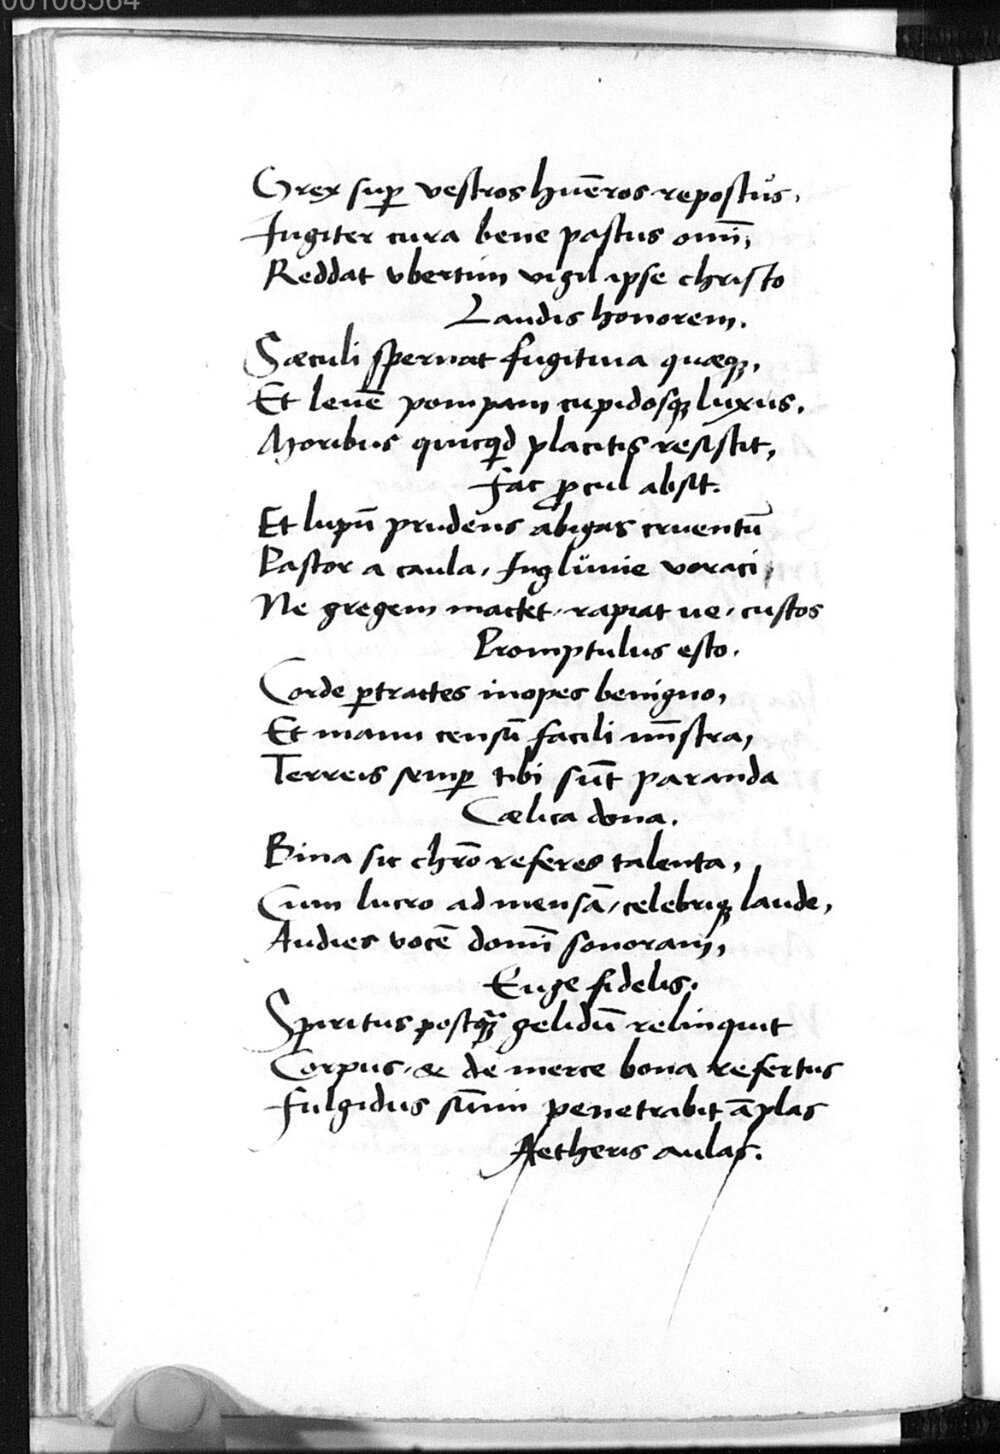 00108564
Grex suꝑ vestros huēros repostus,
Iugiter cura bene pastus omī,
Reddat vbertim vigil ipse christo
Laudis honorem.
Sæculi spernat fugitiua quæqꝫ,
Et leuē pompam cupidosqꝫ luxus,
Moribus quicqd placitis resistit,
Fac ꝓcul absit.
Et lupū prudens abigas cruentū
Pastor a caula, Ingluuie voraci,
Ne gregem mactet, rapiat ue, custos
Promptulus esto.
Corde ꝑtractes inopes benigno,
Et manu censū facili mīstra,
Terreis semꝑ tibi sūt paranda
Cælica dona.
Bina sic chr̄o referes talenta,
Cum lucro ad mensā, celebriqꝫ laude,
Audies vocē domī sonoram,
Euge fidelis.
Spiritus postqꝫ̄ gelidū relinquit
Corpus, & de merce bona refertus
Fulgidus sūmi penetrabit āplas
Aetheris aulas.